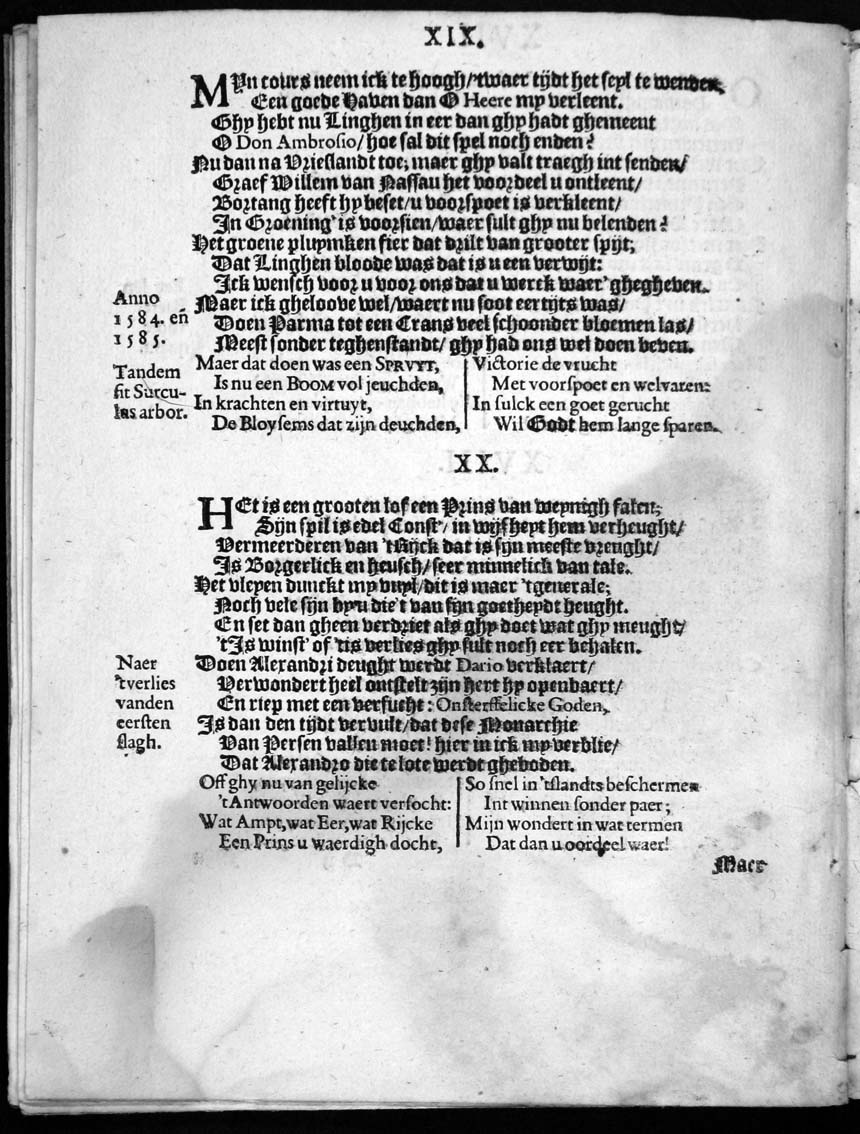 XIX.
MYn cours neem ick te hoogh/'twaer tijdt het seyl te wenden,
Een goede Haven dan O Heere my verleent.
Ghy hebt nu Linghen in eer dan ghy hadt ghemeent
O Don Ambrosio/ hoe sal dit spel noch enden?
Nu dan na Vrieslandt toe; maer ghy valt traegh int senden/
Graef Willem van Nassau het voordeel u ontleent/
Bortang heeft hy beset/ u voorspoet is verkleent/
In Groening' is voorsien/ waer sult ghy nu belenden?
Het groene pluymken fier dat drilt van grooter spijt;
Dat Linghen bloode was dat is u een verwijt:
Ick wensch voor u voor ons dat u werck waer' ghegheven.
Maer ick gheloove wel/ waert nu soot eertijts was/
Doen Parma tot een Crans veel schoonder bloemen las/
Meest sonder teghenstandt/ ghy had ons wel doen beven.
Anno
1584. en
1585.
Tandem
fit Surcu-
lus arbor.
Maer dat doen was een SPRUYT,
Is nu een BOOM vol jeuchden,
In krachten en virtuyt,
De Bloysems dat zijn deuchden,
Victorie de vrucht
Met voorspoet en welvaren:
In sulck een goet gerucht
Wil Godt hem lange sparen.
XX.
HEt is een grooten lof een Prins van weynigh falen;
Sijn spil is edel Const/ in wijsheyt hem verheught/
Vermeerderen van 'tRijck dat is sijn meeste vreught/
Is Borgerlick en heusch/ seer minnelick van tale.
Het vleyen dunckt my vuyl/ dit is maer 'tgenerale;
Noch vele sijn by u die't van sijn goetheydt heught.
En set dan gheen verdriet als ghy doet wat ghy meught/
'tIs winst' of 'tis verlies ghy sult noch eer behalen.
Doen Alexandri deught werdt Dario verklaert/
Verwondert heel ontstelt zijn hert hy openbaert/
En riep met een versucht: Onsterffelicke Goden,
Is dan den tijdt vervult/ dat dese Monarchie
Van Persen vallen moet! hier in ick my verblie/
Dat Alexandro die te lote werdt gheboden.
Naer
'tverlies
vanden
eersten
slagh.
Off ghy nu van gelijcke
'tAntwoorden waert versocht:
Wat Ampt, wat Eer, wat Rijcke
Een Prins u waerdigh docht,
So snel in 'tslandts beschermen
Int winnen sonder paer;
Mijn wondert in wat termen
Dat dan u oordeel waer!
Maer